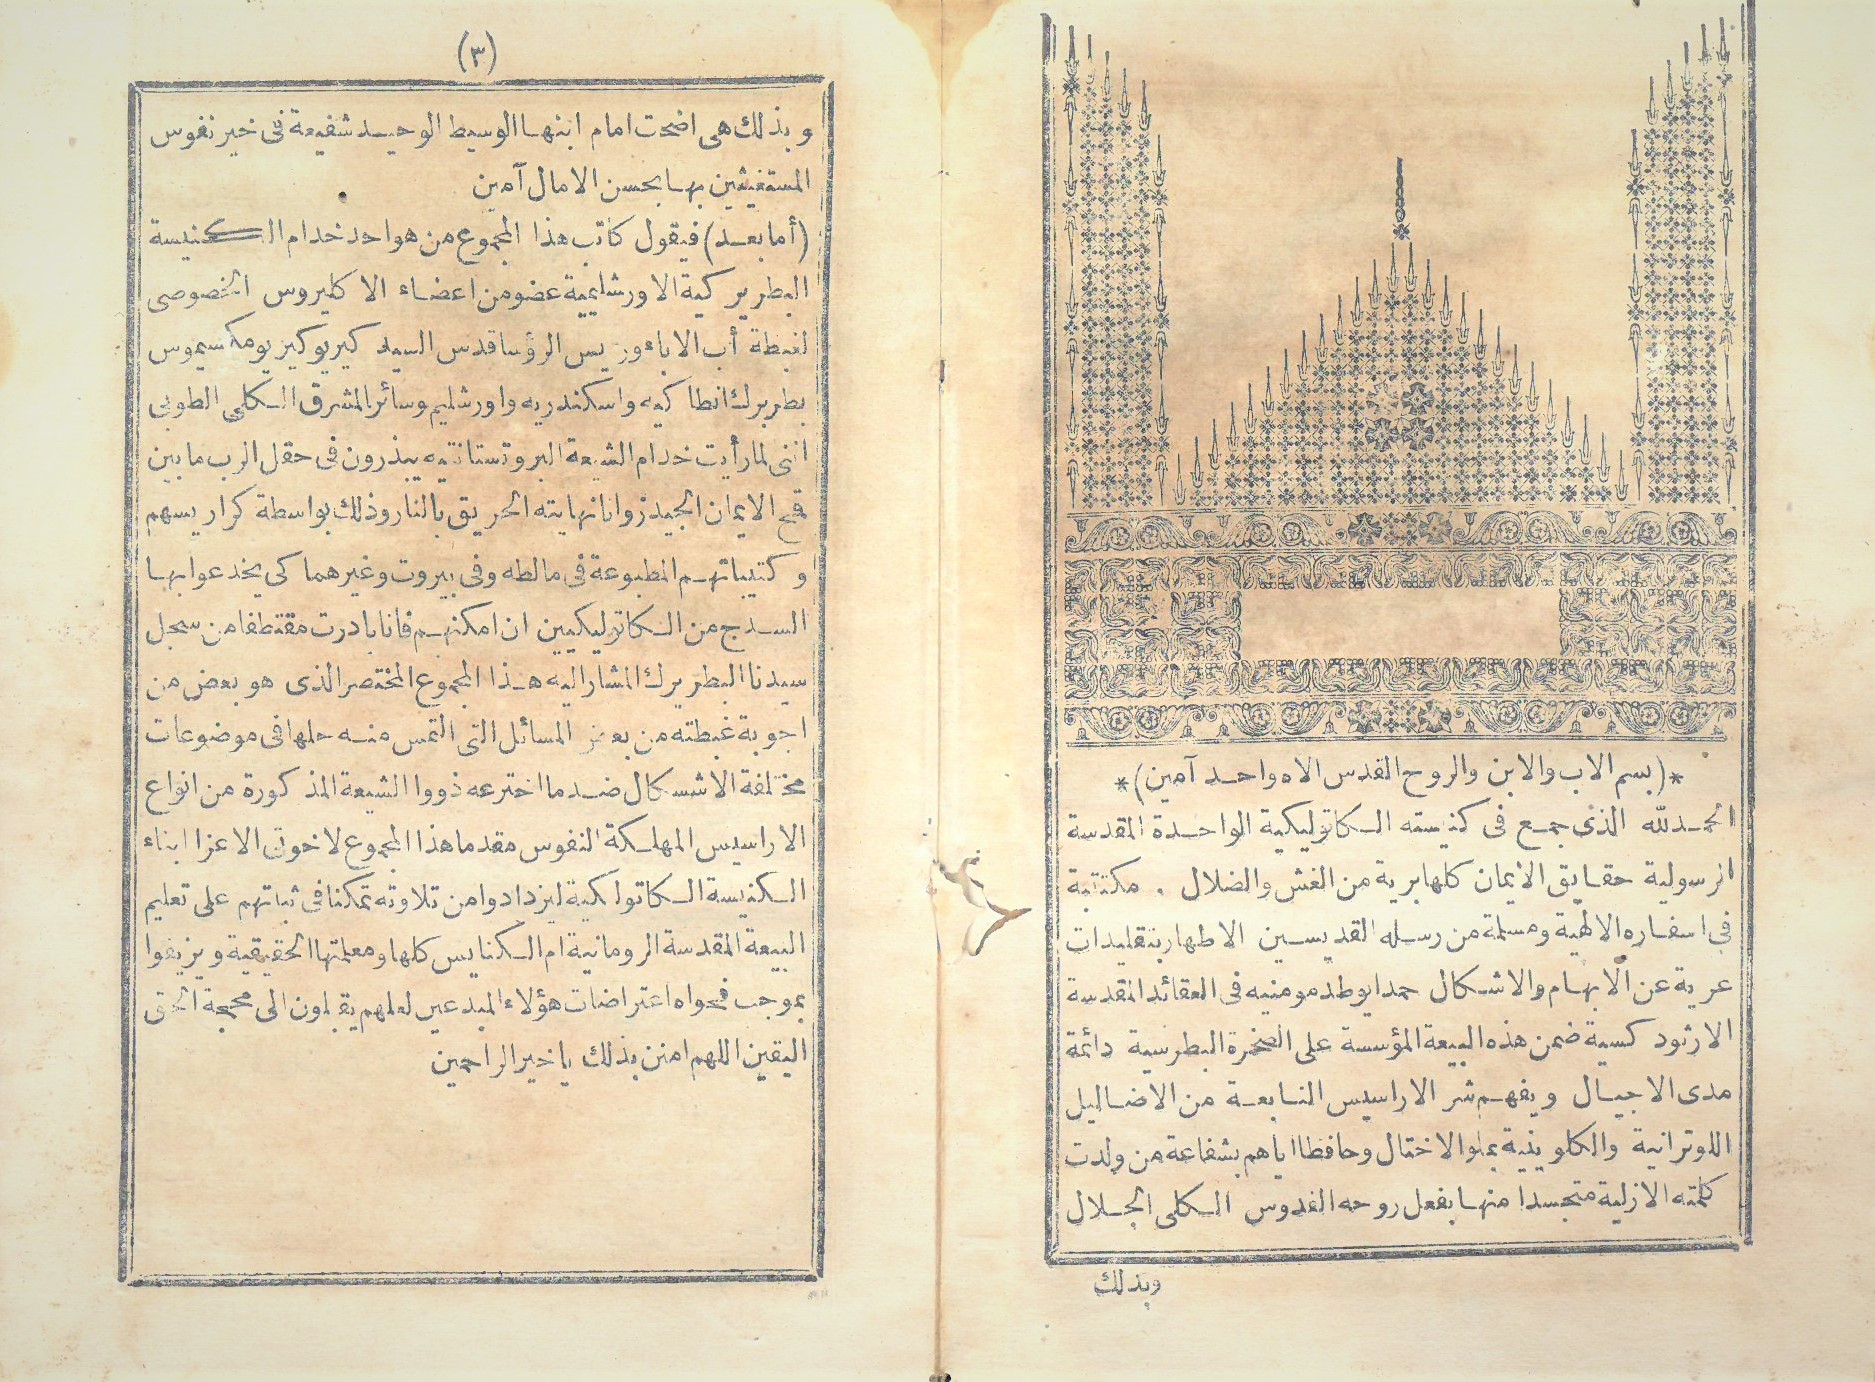 *(بسم الاب والابن والروح القدس الاه واحد آمين)*
الحمد لله الذى جمع فى كنيسته الكاتوليكية الواحدة المقدسة
الرسولية حقايق الايمان كلها برية من الغش والضلال . مكتتبة
فى اسفاره الالهية ومسلمة من رسله القديسين الاطهار بتقليدات
عرية عن الابهام والاشكال حمدا يوطد مومنيه فى العقائد المقدسة
الارثودكسية ضمن هذه البيعة المؤسسة على الصخرة البطرسية دائمة
مدى الاجيال ويفهم شر الاراسيس النابعة من الاضاليل
اللوترانية والكلوينية بملو الاختال وحافظا اياهم بشفاعة من ولدت
كلمته الازلية متجسدا منها بفعل روحه القدوس الكلى الجلال
وبذلك
(٣)
وبذلك هى اضحت امام ابنها الوسيط الوحيد شفيعة فى خير نفوس
المستغيثين بها بحسن الامال آمين
(أما بعد) فيقول كاتب هذا المجموع من هو احد خدام الكنيسة
البطريركية الاورشليمية عضو من اعضاء الاكليروس الخصوصى
لغبطة أب الاباء وريس الرؤسا قدس السيد كيريو كيريو مكسيموس
بطريرك انطاكيه واسكندريه واورشليم وسائر المشرق الكلى الطوبى
اننى لما رأيت خدام الشيعة البروتستانتيه يبذرون فى حقل الرب ما بين
قمح الايمان الجيد زوانا نهايته الحريق بالنار وذلك بواسطة كراريسهم
وكتيباتهم المطبوعة فى مالطه وفى بيروت وغيرهما كى يخدعوا بها
السدج من الكاتوليكيين ان امكنهم فانا بادرت مقتطفا من سجل
سيدنا البطريرك المشار اليه هذا المجموع المختصر الذى هو بعض من
اجوبة غبطته من بعض المسائل التى التمس منه حلها فى موضوعات
مختلفة الاشكال ضد ما اخترعه ذووا الشيعة المذكورة من انواع
الاراسيس المهلكة النفوس مقدما هذا المجموع لاخوتى الاعزا ابناء
الكنيسة الكاتوليكية ليزدادوا من تلاوته تمكنا فى ثباتهم على تعليم
البيعة المقدسة الرومانية ام الكنايس كلها ومعلمتها الحقيقية ويزيفوا
بموجب فحواه اعتراضات هؤلاء المبدعين لعلهم يقبلون الى محجة الحق
اليقين اللهم امنن بذلك يا خير الراحمين